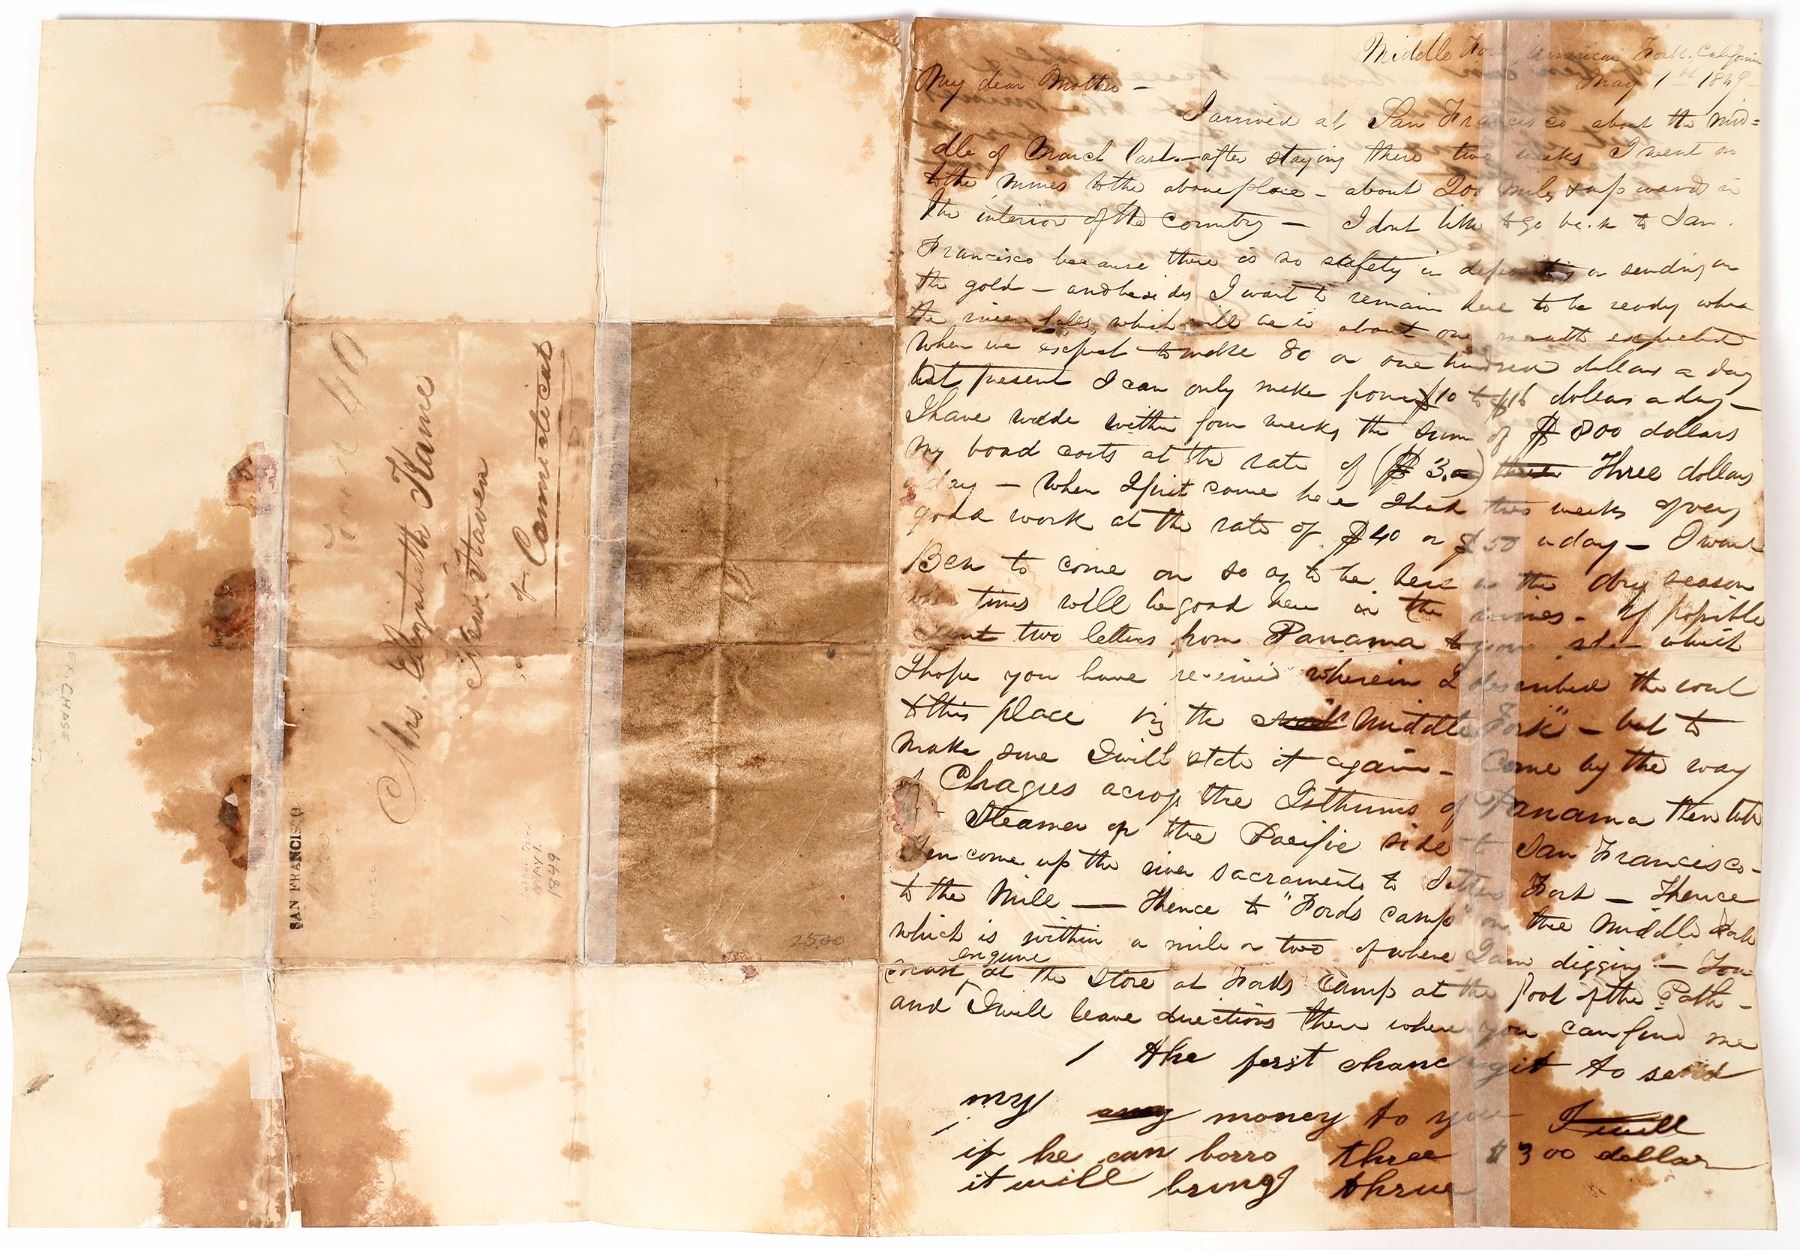 Middle Fork, American Fork, California
May 1st 1849
My dear Mother -
I arrived at San Francisco about the mid=
dle of March last - after staying there two weeks I went on
to the mines to the above place - about 200 miles & upwards in
the interior of the country - I dont like to go back to San
Francisco because there is no safety in depositing or sending on
the gold - and besides I want to remain here to be ready when
the river falls, which will be in about one month expected
when we expect to make 80 or one hundred dollars a day
at present I can only make from $10 to $16 dollars a day -
I have made within four weeks the sum of $ 800 dollars
my board costs at the rate of ($ 3.00) three Three dollars
a day - When I first come here I had two weeks of very
good work at the rate of $40 or $50 a day - I want
Ben to come on so as to be here in the dry season
times will be good here in the mines - If possible
two letters from Panama which
I hope you have received wherein I described the rout
to this place viz the "Middle Fork" - but to
make sure I will state it again - Come by the way
of Chagres across the Isthmus of Panama then take
Steamer on the Pacific side to San Francisco -
then come up the river Sacramento to Sutters Fort - Thence
to the Mill - Thence to "Fords Camp" on the Middle Fork
which is within a mile or two of where I am digging - You
must enquire at the store at Fords Camp at the foot of the Path -
and I will leave directions there where you can find me
/ the ferst chanc I git to send
my any money to you I will
if he can borro three $300 dollar
it will bring thrue
Mrs. Elizabeth Kaine
New Haven
of Connecticut
40
SAN FRANCISCO
MAY 1.
1849
EX. CHASE
2500